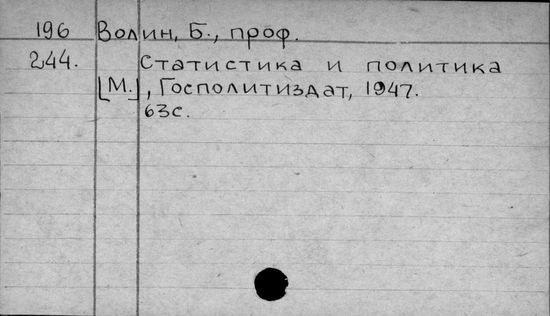 196 Волин, Б., проф.
244. Статистика и политика
[М.], Госполитиздат, 1947.
63с.